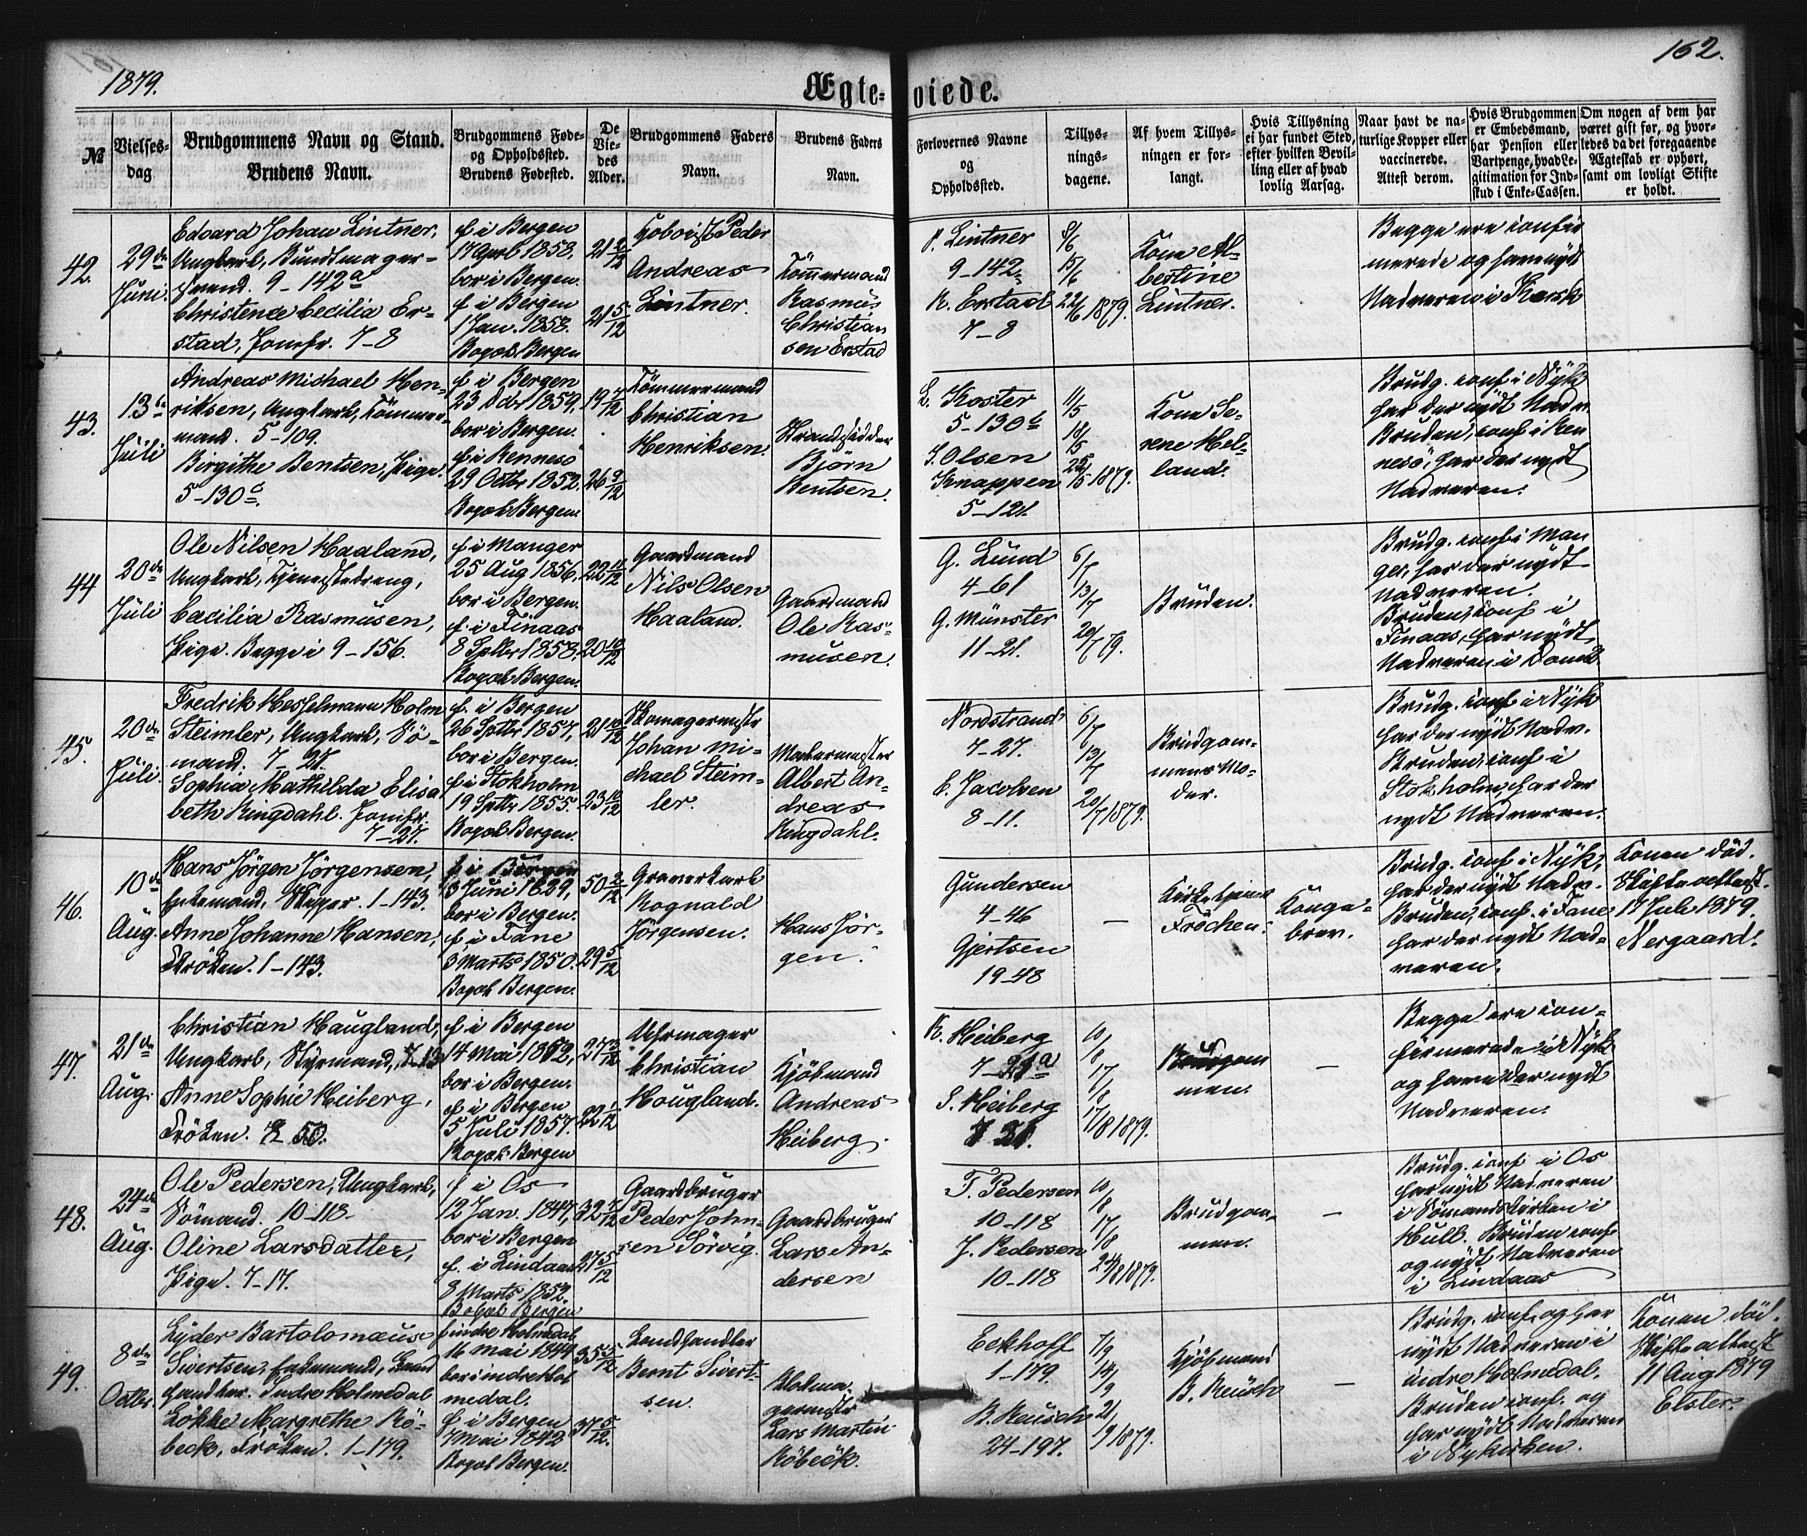 1879.
162.
Ægte-
viede.
№
Vielses-
dag
Brudgommens Navn og Stand.
Brudens Navn.
Brudgommens Føde-
og Opholdssted.
Brudens Fødested.
De
Vie-
des
Alder.
Brudgommens Faders
Navn.
Brudens Faders
Navn.
Forlovernes Navne
og
Opholdssted.
Tillys-
nings-
dagene.
Af hvem Tillys-
ningen er for-
langt.
Hvis Tillysning
ei har fundet Sted,
efter hvilken Bevil-
ling eller af hvad
lovlig Aarsag.
Naar havt de na-
turlige Kopper eller
vaccinerede.
Attest derom.
Hvis Brudgommen
er Embedsmand,
har Pension eller
Vartpenge, hvad Le-
gitimation for Ind-
skud i Enke-Cassen.
Om nogen af dem har
været gift før, og hvor-
ledes da det foregaaende
Ægteskab er ophørt,
samt om lovligt Skifte
er holdt.
42.
29de
Juni.
Edvard Johan Lintner,
Ungkarl, Bundtmager-
svend. 9-142a
Christence Cecilia Er-
stad, Jomfr. 7-8
f. i Bergen
17 April 1858.
bor i Bergen.
f. i Bergen
1 Jan. 1858.
Bopæl Bergen
21 2/12
21 5/12
Peder
Andreas
Lintner.
Tømmermand
Rasmus
Christian
sen Erstad
P. Lintner
9-142a
R. Erstad
7-8
8/6
15/6
22/6 1879.
Kone Al-
bertine
Lintner.
Begge ere confir
merede og have nydt
Nadveren i Korsk
43.
13de
Juli
Andreas Michael Hen-
riksen, Ungkarl, Tømmer-
mand. 5-109.
Birgithe Bentsen, Pige.
5-130c.
f. i Bergen
23 Dcbr 1859,
bor i Bergen.
f. i Rennesø
29 Octbr 1852.
Bopæl Bergen.
19 7/12
26 9/12
Tømmermand
Christian
Henriksen.
Strandsidder
Bjørn
Bentsen.
L. Koster
5-130c
S. Olsen
Knappen
5-121.
11/5
18/5
25/5 1879.
Kone Se-
rene Hel-
land.
Brudg. conf. i Nyk
har der nydt Nadv.
Bruden, conf. i Ren
nesø, har der nydt
Nadveren.
44
20de
Juli
Ole Nilsen Haaland,
Ungkarl, Tjenestedreng,
Cacilia Rasmusen,
Pige. Begge i 9-156.
f. i Manger
25 Aug 1856,
bor i Bergen.
f. i Finaas
8 Septbr 1858.
Bopæl Bergen.
22 11/12
20 10/12
Gaardmand
Nils Olsen
Haaland.
Gaardmand
Ole Ras-
musen.
G. Lund
4-61
G. Münster
11-21.
6/7
13/7
20/7 79.
Bruden.
Brudg. conf. i Man
ger, har der nydt
Nadveren.
Bruden, conf. i
Finaas, har nydt
Nadveren i Domk
45.
20de
Juli.
Fredrik Hesselmann Holm
Steimler, Ungkarl, Sø-
mand. 7-27.
Sophia Mathilda Elisa
beth Ringdahl. Jomfr.
7-27.
f. i Bergen
26 Septbr 1857,
bor i Bergen.
f. i Stokholm
19 Septbr 1855.
Bopæl Bergen.
21 10/12
23 10/12
Skomagermester
Johan Mi-
chael Steim-
ler.
Malermester
Albert An-
dreas
Ringdahl.
Nordstrand
7-27.
C. Jacobsen
8-11.
6/7
13/7
20/7 1879.
Brudgom-
mens Mo-
der.
Brudg. conf. i Nyk
har der nydt Nadv.
Bruden, conf. i
Stokholm, har der
nydt Nadveren.
46.
10de
Aug.
Hans Jørgen Jørgensen,
Enkemand, Skipper. 1-143.
Anne Johanne Hansen,
Frøken. 1-143.
f. i Bergen
3 Juni 1829,
bor i Bergen.
f. i Fane
3 Marts 1850.
Bopæl Bergen.
50 2/12
29 5/12
Graverkarl
Rognald
Jørgensen.
Hans Jør-
gen.
Gundersen
4-46
Gjertsen
19-48
—
Kirketjener
Frøchen.
Konge-
brev.
Brudg. conf. i Nyk,
har der nydt Nadv.
Bruden, conf. i Fane
har der nydt Nad-
veren.
Konen død.
Skifteattest.
17 Juli 1879.
Nergaard.
47.
21de
Aug.
Christian Haugland,
Ungkarl, Styrmand, 7-13
Anne Sophie Heiberg,
Frøken.
f. i Bergen
14 Mai 1852,
bor i Bergen.
f. i Bergen
5 Juli 1857.
Bopæl Bergen
27 3/12
22 1/12
Uhrmager
Christian
Hougland.
Kjøbmand
Andreas
Heiberg.
R. Heiberg
7-21a
S. Heiberg
7 21.
10/8
17/8
17/8 1879.
Brudgom
men.
—
Begge ere con-
firmerede i Nyk
og have der nydt
Nadveren.
48.
24de
Aug.
Ole Pedersen, Ungkarl,
Sømand. 10-118
Oline Larsdatter,
Pige. 7-17.
f. i Os
12 Jan. 1847,
bor i Bergen
f. i Lindaas
8 Marts 1852.
Bopæl Bergen
32 7/12
27 5/12
Gaardbruger
Peder John-
sen Sørvig.
Gaardbruger
Lars An-
dersen
T. Pedersen
10-118
J. Pedersen
10-118
10/8
17/8
24/8 1879.
Brudgom-
men.
—
Brudg. conf. i Os
har nydt Nadveren
i Sømandskirken i
Hull. Bruden conf.
og nydt Nadveren
i Lindaas
49.
8de
Octbr.
Lyder Bartolomæus
Sivertsen, Enkemand, Land
handler. Indre Holmedal
Løkke Margrethe Rø-
beck, Frøken. 1-179.
f. indre Holmedal
16 Mai 1844
bor indre Hol
medal.
f. i Bergen
7 Mai 1842
Bopæl Bergen.
35 5/12
37 5/12.
Landhandler
Bernt Sivert-
sen.
Lars Martin
Røbeck.
Eckhoff
1-179.
B. Reusch
24-197.
7/9
14/9
21/9 1879.
Kjøbmand
B. Reusch
—
Brudg. conf. og har
nydt Nadveren i
indre Holmedal.
Bruden conf. og
har nydt Nadveren
i Nykirken.
Konen død.
Skifteattest
11 Aug 1879
Elster.